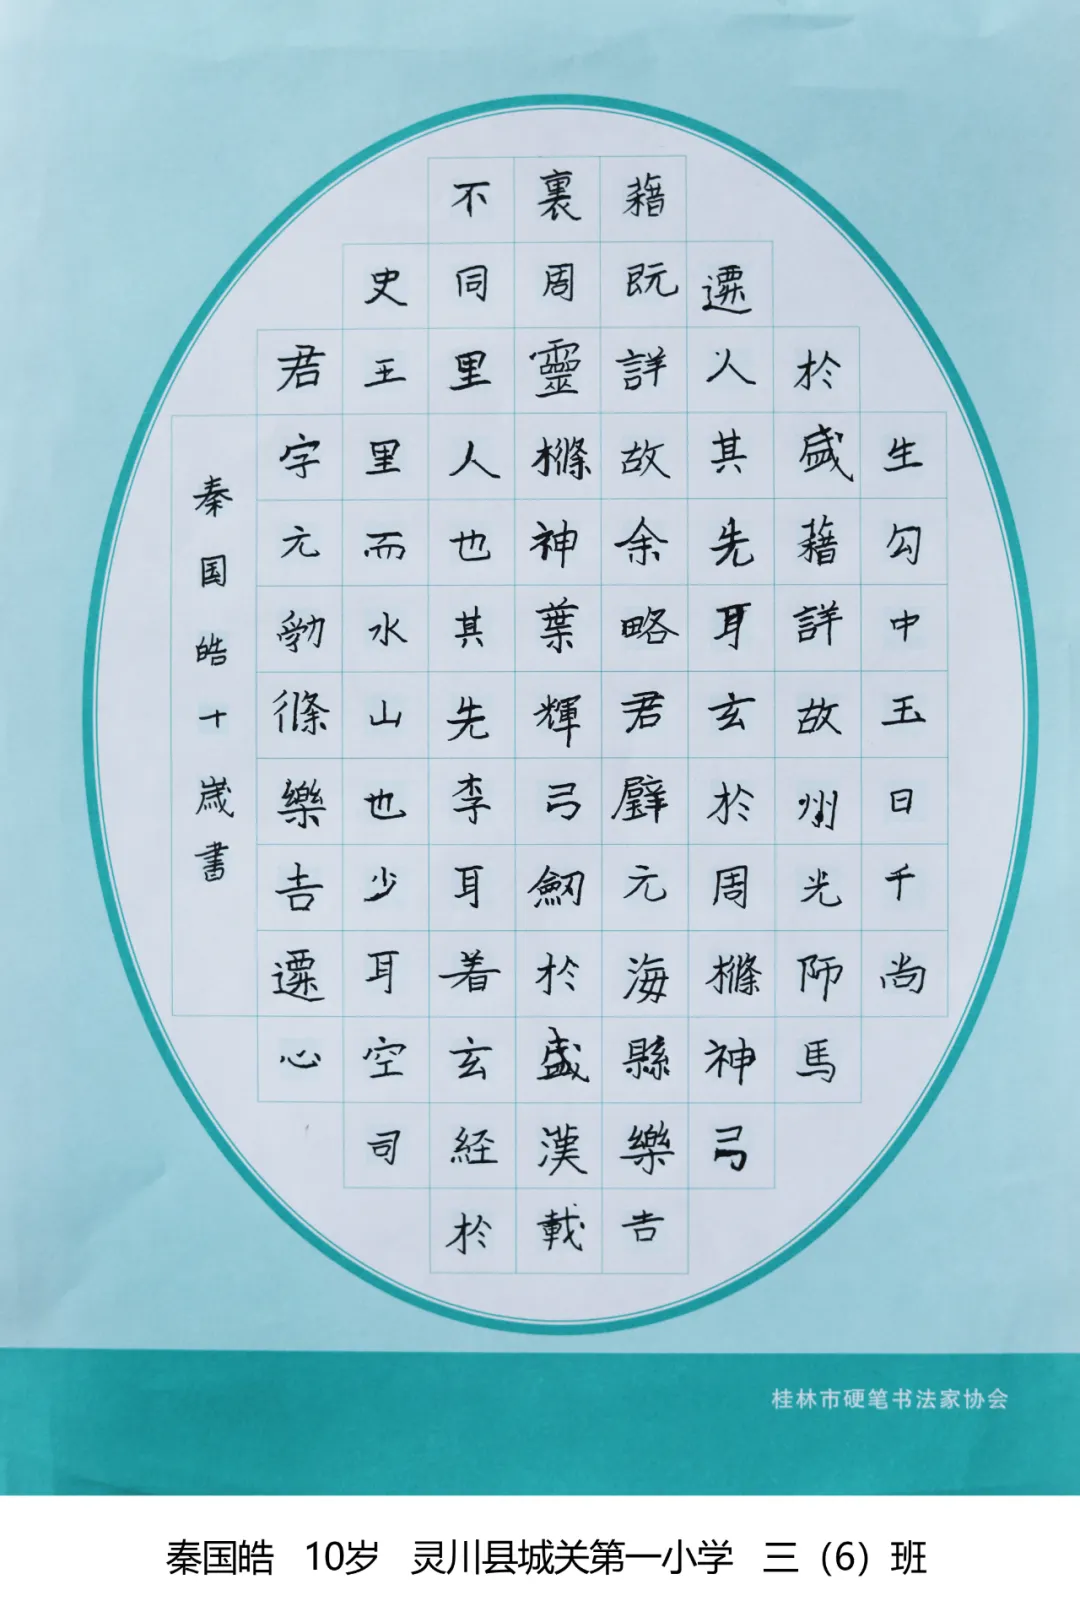 生勾中玉日千尚
於盛藉詳故州光師馬
遷人其先耳玄於周樤神弓
藉既詳故余略君元海縣樂吉
裏周靈樤神葉輝弓劒於盛漢載
不同里人也其先李耳着玄経於
史王里而水山也少耳空司
君字元勃條樂吉遷心
秦国皓十歲書
桂林市硬笔书法家协会
秦国皓 10岁 灵川县城关第一小学 三（6）班